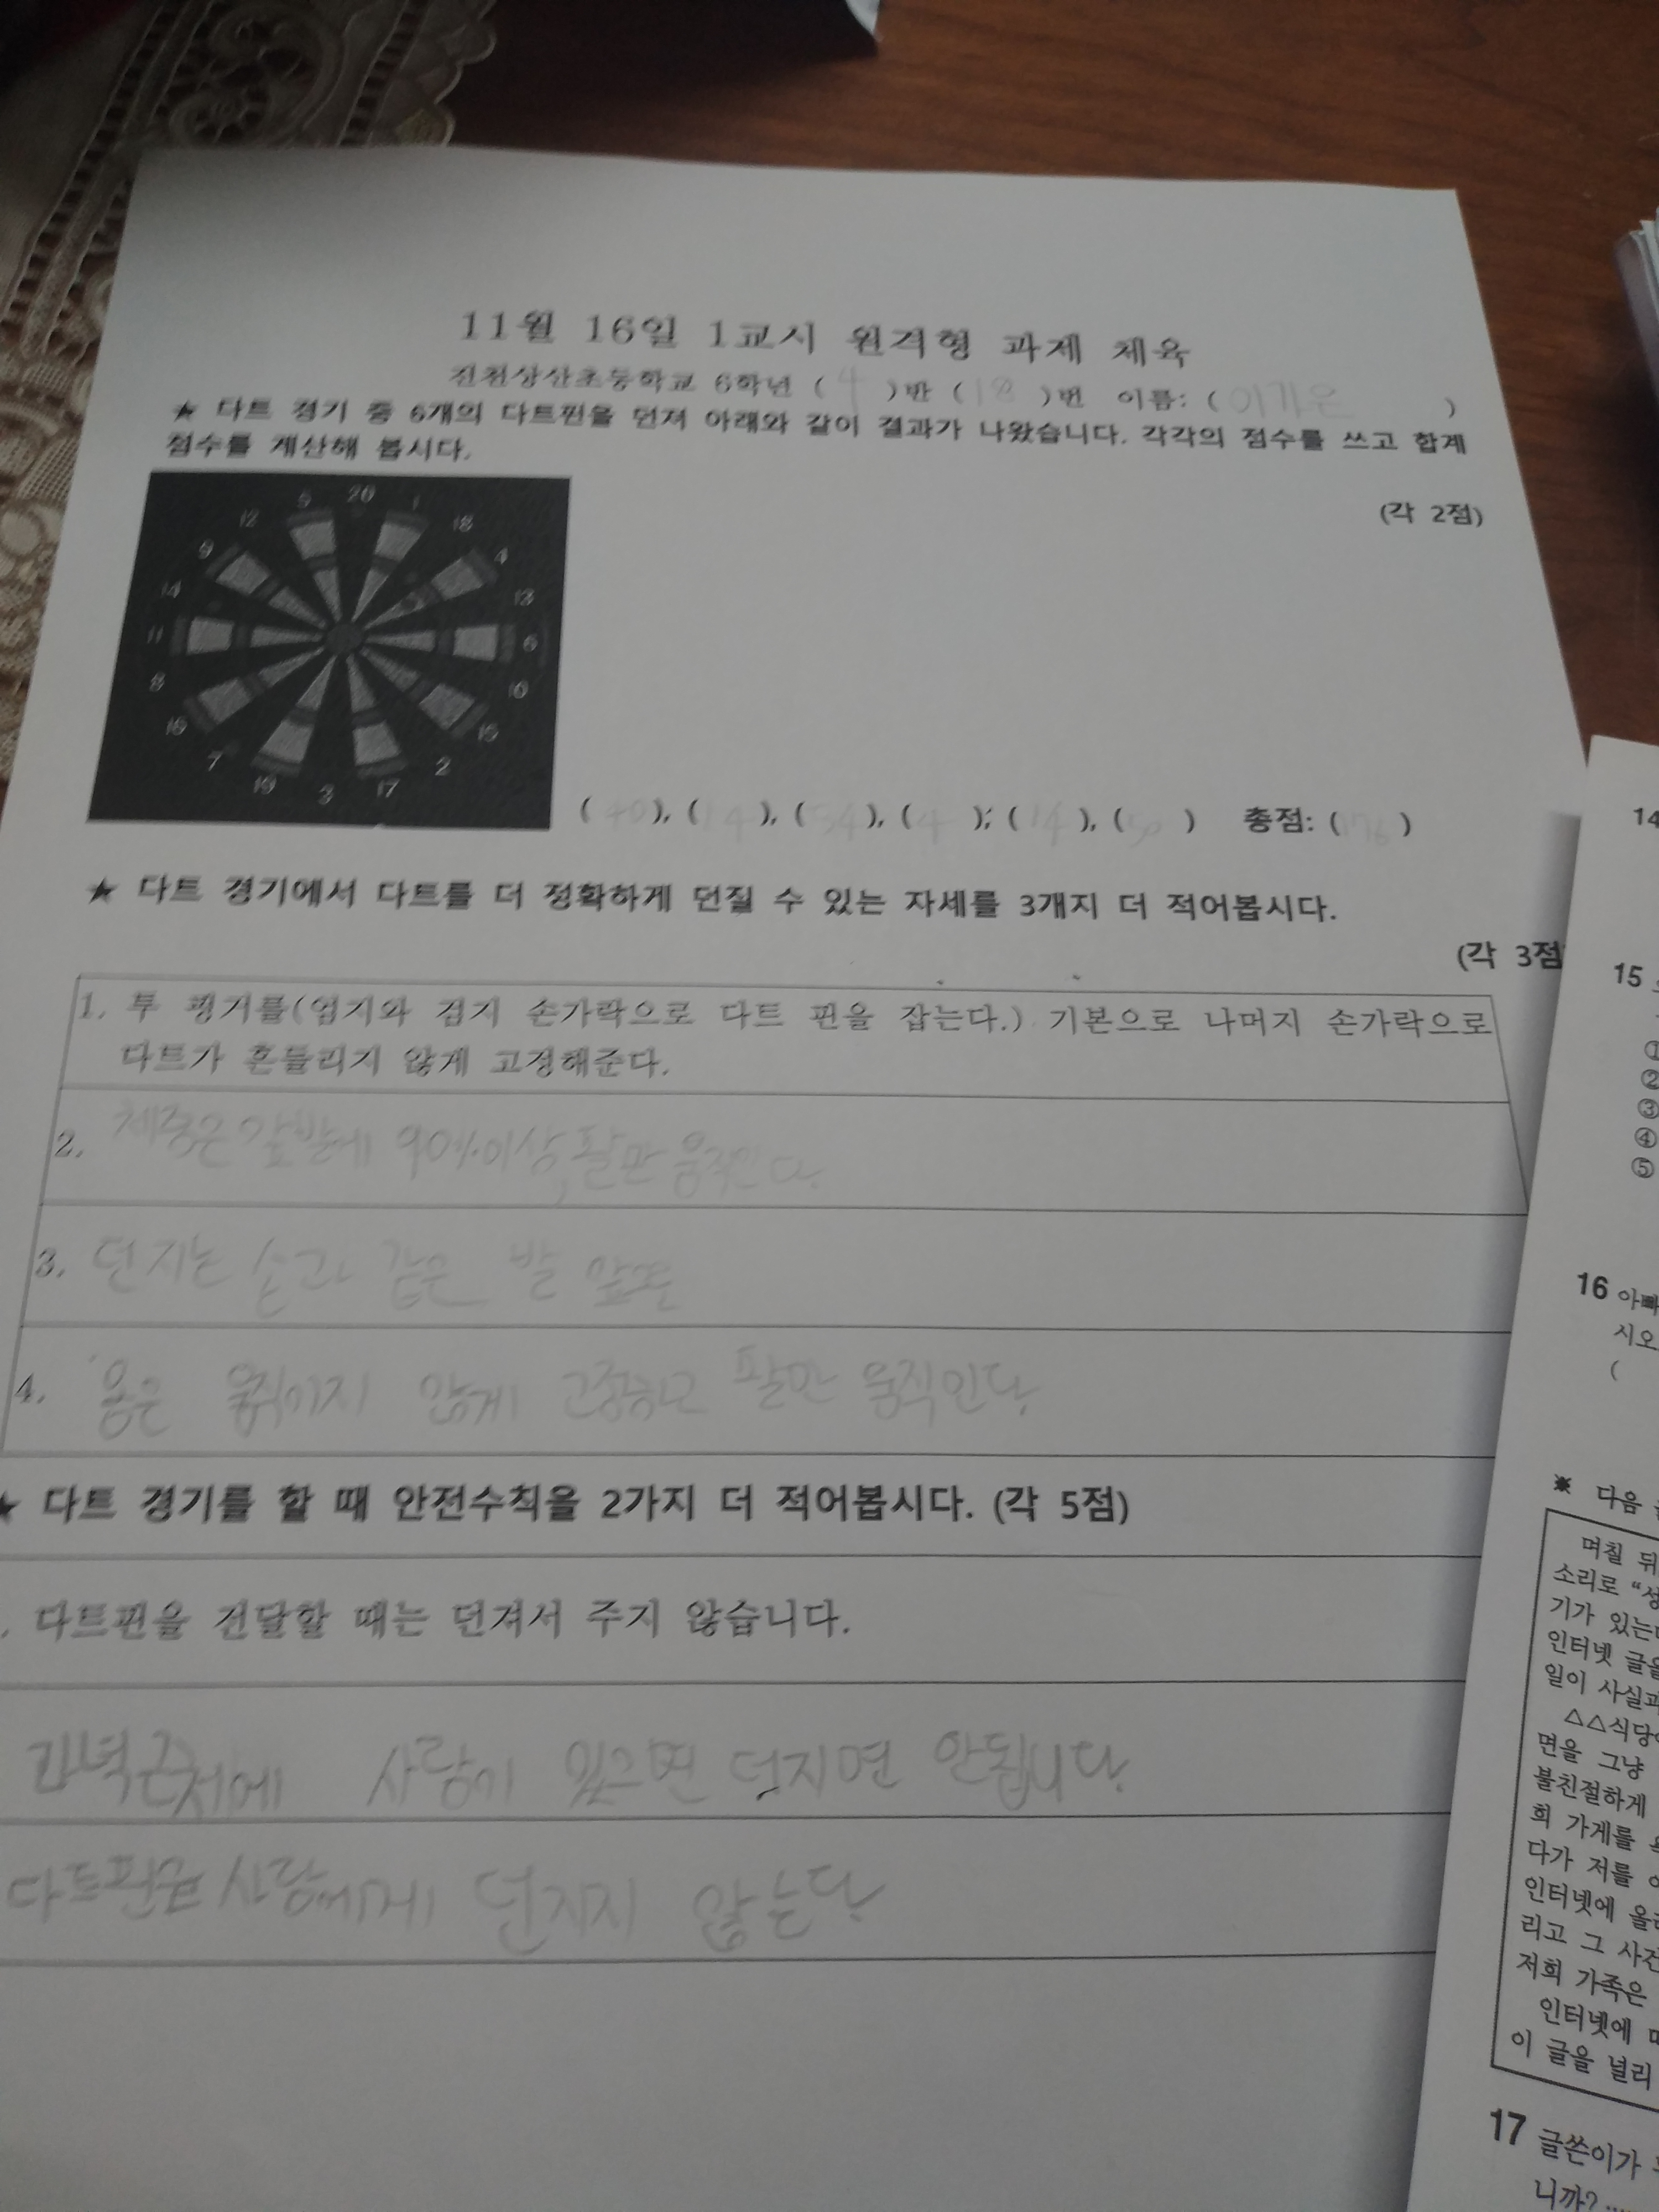 11월 16일 1교시 원격형 과제 체육
진천상산초등학교 6학년 ( 4 )반 ( 18 )번 이름: ( 이가은 )
★ 다트 경기 중 6개의 다트핀을 던져 아래와 같이 결과가 나왔습니다. 각각의 점수를 쓰고 합계
점수를 계산해 봅시다.
(각 2점)
5 20 1
12 18
9 4
14 13
11 6
8 10
16 15
7 2
19 3 17
( 40 ), ( 14 ), ( 54 ), ( 4 ), ( 14 ), ( 50 ) 총점: ( 176 )
★ 다트 경기에서 다트를 더 정확하게 던질 수 있는 자세를 3개지 더 적어봅시다.
(각 3점
1. 투 핑거를(엄지와 검지 손가락으로 다트 핀을 잡는다.) 기본으로 나머지 손가락으로
다트가 흔들리지 않게 고정해준다.
2. 체중은 앞발에 90%이상, 팔만 움직인다.
3. 던지는 손과 같은 발 앞쪽
4. 몸은 움직이지 않게 고정하고 팔만 움직인다.
★ 다트 경기를 할 때 안전수칙을 2가지 더 적어봅시다. (각 5점)
. 다트핀을 전달할 때는 던져서 주지 않습니다.
과녁근처에 사람이 있으면 던지면 안됩니다.
다트핀을 사람에게 던지지 않는다.
14
15
①
②
③
④
⑤
16 아빠
시오
(
※ 다음
며칠 뒤
소리로 “성
기가 있는
인터넷 글을
일이 사실과
△△식당
면을 그냥
불친절하게
희 가게를
다가 저를
인터넷에 올
리고 그 사건
저희 가족은
인터넷에
이 글을 널리
17 글쓴이가
니까?